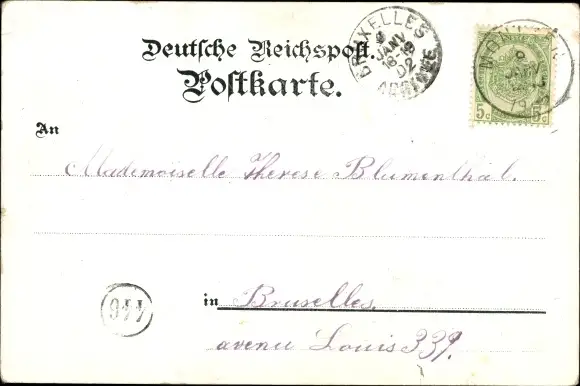 Deutsche Reichspost.
Postkarte.
BRUXELLES
JANV
18-19
02
ARRIVÉE
5c 5c
An
Mademoiselle Therese Blumenthal.
446
in Bruselles.
avenue Louis 339.